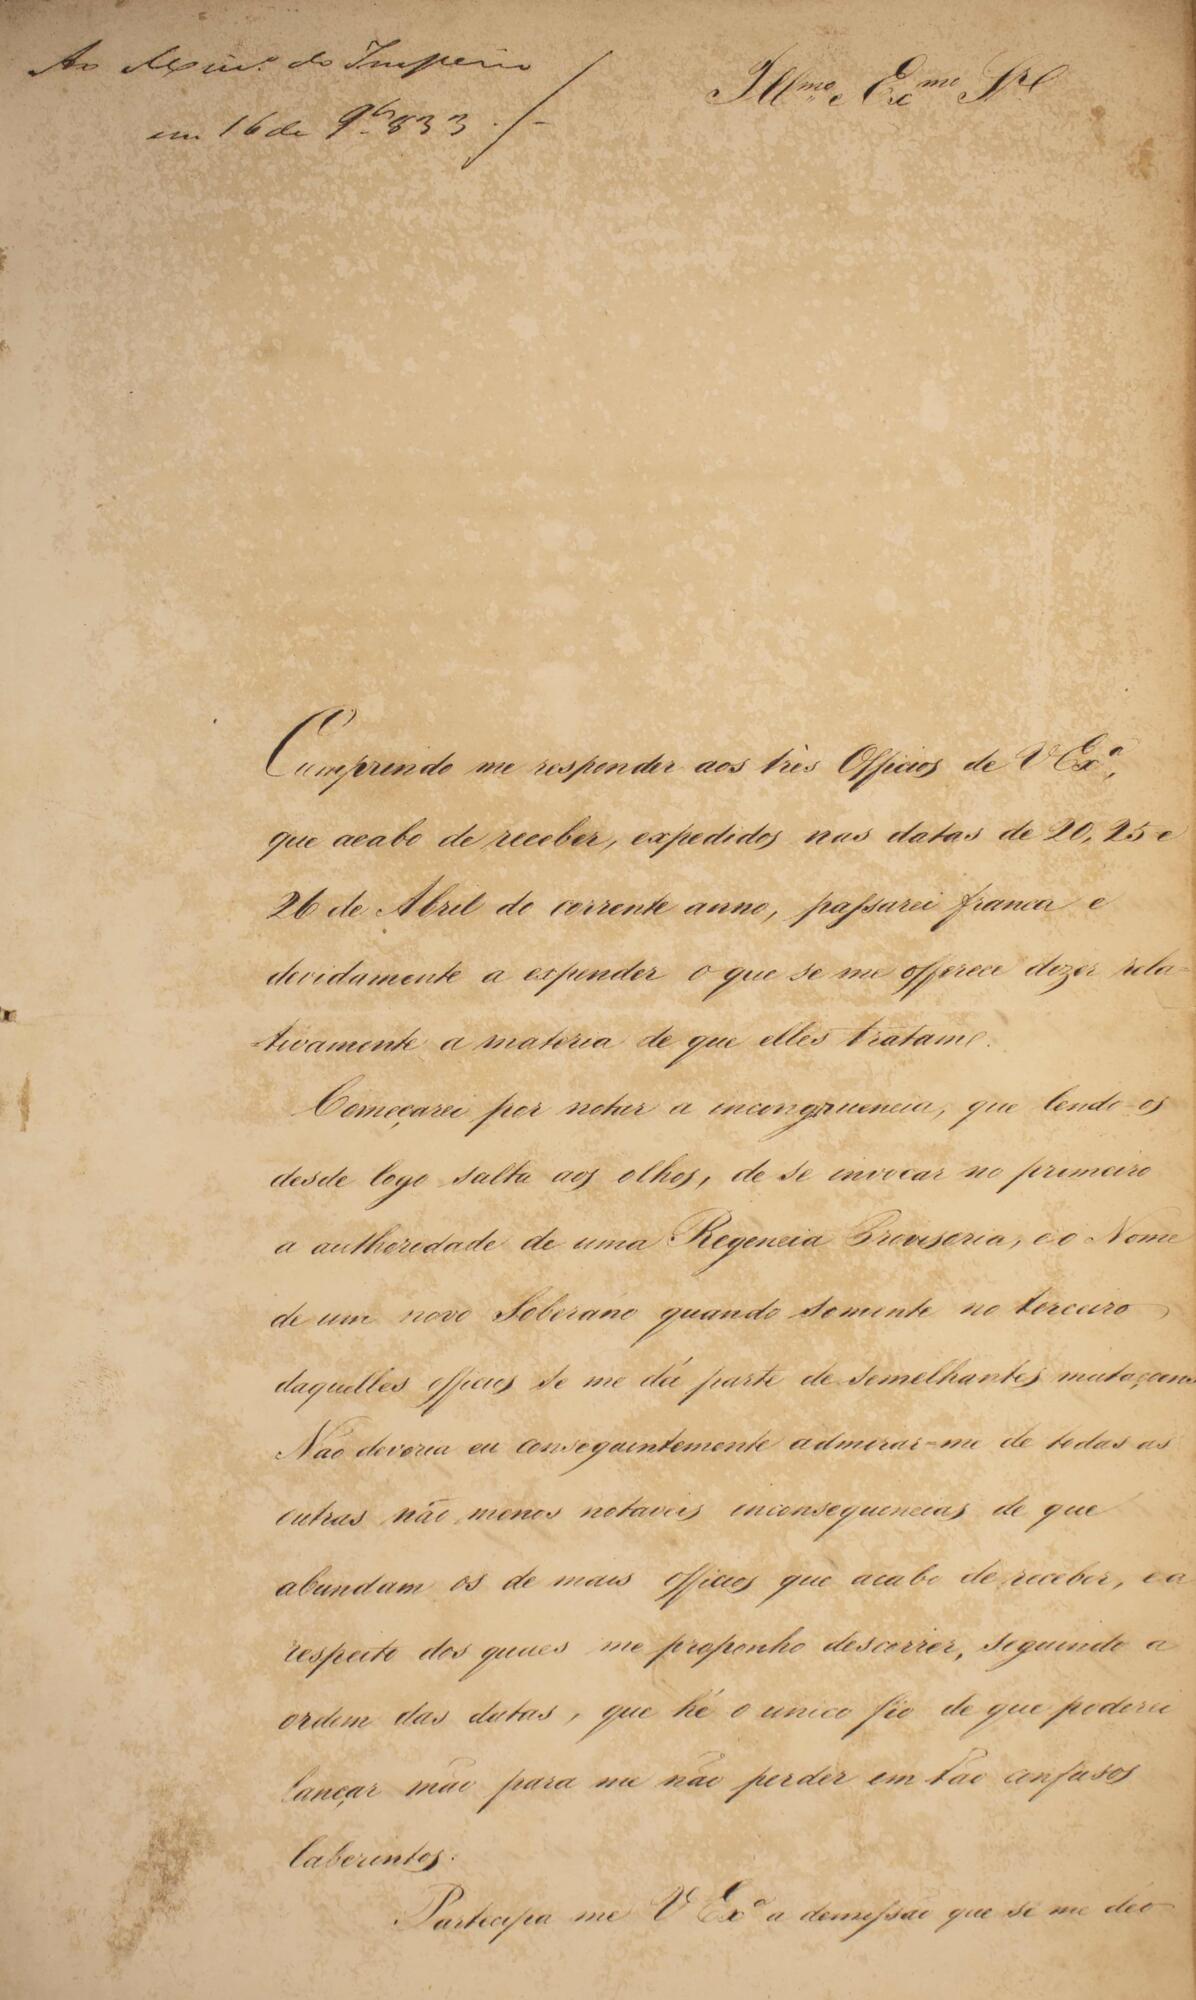 Ao Minº do Imperio
em 16 de 9bro 833.
Illmo e Excmo Snr
Cumprindo me responder aos três Officios de V Exª,
que acabo de receber, expedidos nas datas de 20, 25 e
26 de Abril do corrente anno, passarei franca e
devidamente a expender o que se me offerece dizer rela-
-tivamente a materia de que elles tratam.
Começarei por notar a incongruencia, que lendo-os
desde logo salta aos olhos, de se invocar no primeiro
a authoridade de uma Regencia Provisoria, e o Nome
de um novo Soberano quando somente no terceiro
daquelles officios se me dá parte de semelhantes mutaçoens
Não deveria eu conseguintemente admirar-me de todas as
outras não menos notaveis inconsequencias de que
abundam os de mais officios que acabo de receber, e a
respeito dos quaes me proponho descorrer, seguindo a
ordem das datas, que hé o unico fio de que poderei
lançar mão para me não perder em tão confusos
laberintos.
Partecipa me V Exª a demissão que se me deo